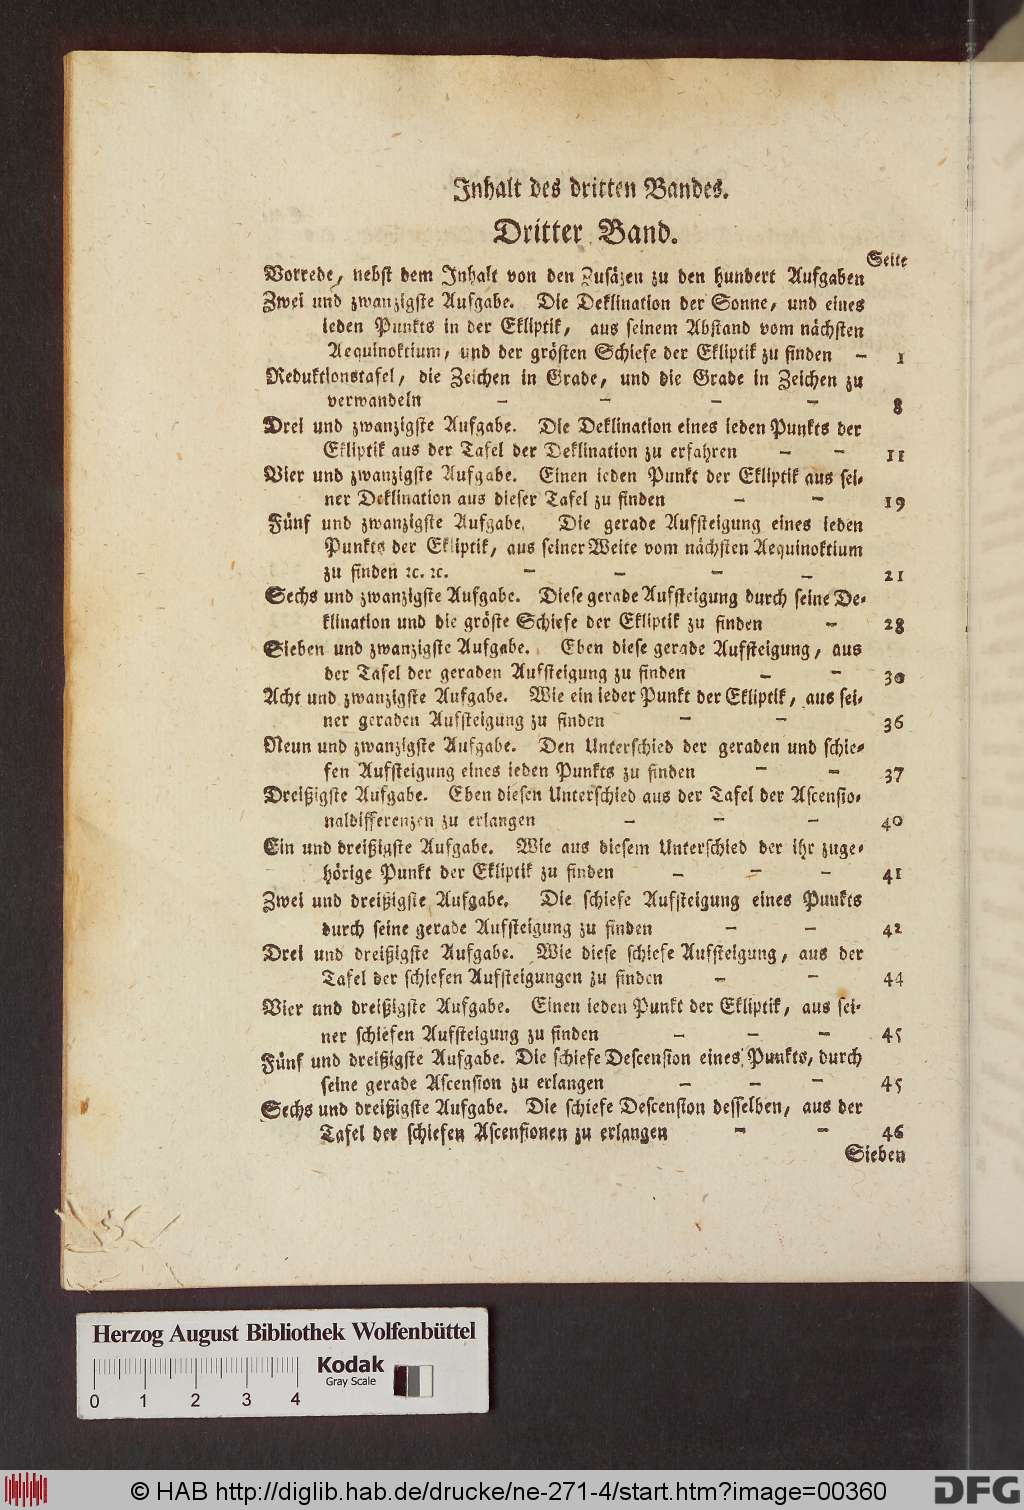 Inhalt des dritten Bandes.
Dritter Band.
Seite
Vorrede, nebst dem Inhalt von den Zusäzen zu den hundert Aufgaben
Zwei und zwanzigste Aufgabe. Die Deklination der Sonne, und eines
ieden Punkts in der Ekliptik, aus seinem Abstand vom nächsten
Aequinoktium, und der grösten Schiefe der Ekliptik zu finden – 1
Reduktionstafel, die Zeichen in Grade, und die Grade in Zeichen zu
verwandeln – – – – 8
Drei und zwanzigste Aufgabe. Die Deklination eines ieden Punkts der
Ekliptik aus der Tafel der Deklination zu erfahren – – 11
Vier und zwanzigste Aufgabe. Einen ieden Punkt der Ekliptik aus sei-
ner Deklination aus dieser Tafel zu finden – – 19
Fünf und zwanzigste Aufgabe. Die gerade Aufsteigung eines ieden
Punkts der Ekliptik, aus seiner Weite vom nächsten Aequinoktium
zu finden ꝛc. ꝛc. – – – – 21
Sechs und zwanzigste Aufgabe. Diese gerade Aufsteigung durch seine De-
klination und die gröste Schiefe der Ekliptik zu finden – 28
Sieben und zwanzigste Aufgabe. Eben diese gerade Aufsteigung, aus
der Tafel der geraden Aufsteigung zu finden – – 30
Acht und zwanzigste Aufgabe. Wie ein ieder Punkt der Ekliptik, aus sei-
ner geraden Aufsteigung zu finden – – 36
Neun und zwanzigste Aufgabe. Den Unterschied der geraden und schie-
fen Aufsteigung eines ieden Punkts zu finden – – 37
Dreißigste Aufgabe. Eben diesen Unterschied aus der Tafel der Ascensio-
naldifferenzen zu erlangen – – – 40
Ein und dreißigste Aufgabe. Wie aus diesem Unterschied der ihr zuge-
hörige Punkt der Ekliptik zu finden – – – 41
Zwei und dreißigste Aufgabe. Die schiefe Aufsteigung eines Punkts
durch seine gerade Aufsteigung zu finden – – 42
Drei und dreißigste Aufgabe. Wie diese schiefe Aufsteigung, aus der
Tafel der schiefen Aufsteigungen zu finden – – 44
Vier und dreißigste Aufgabe. Einen ieden Punkt der Ekliptik, aus sei-
ner schiefen Aufsteigung zu finden – – – 45
Fünf und dreißigste Aufgabe. Die schiefe Descension eines Punkts, durch
seine gerade Ascension zu erlangen – – – 45
Sechs und dreißigste Aufgabe. Die schiefe Descension desselben, aus der
Tafel der schiefen Ascensionen zu erlangen – – 46
Sieben
Herzog August Bibliothek Wolfenbüttel
Kodak
Gray Scale
0 1 2 3 4
© HAB http://diglib.hab.de/drucke/ne-271-4/start.htm?image=00360
DFG